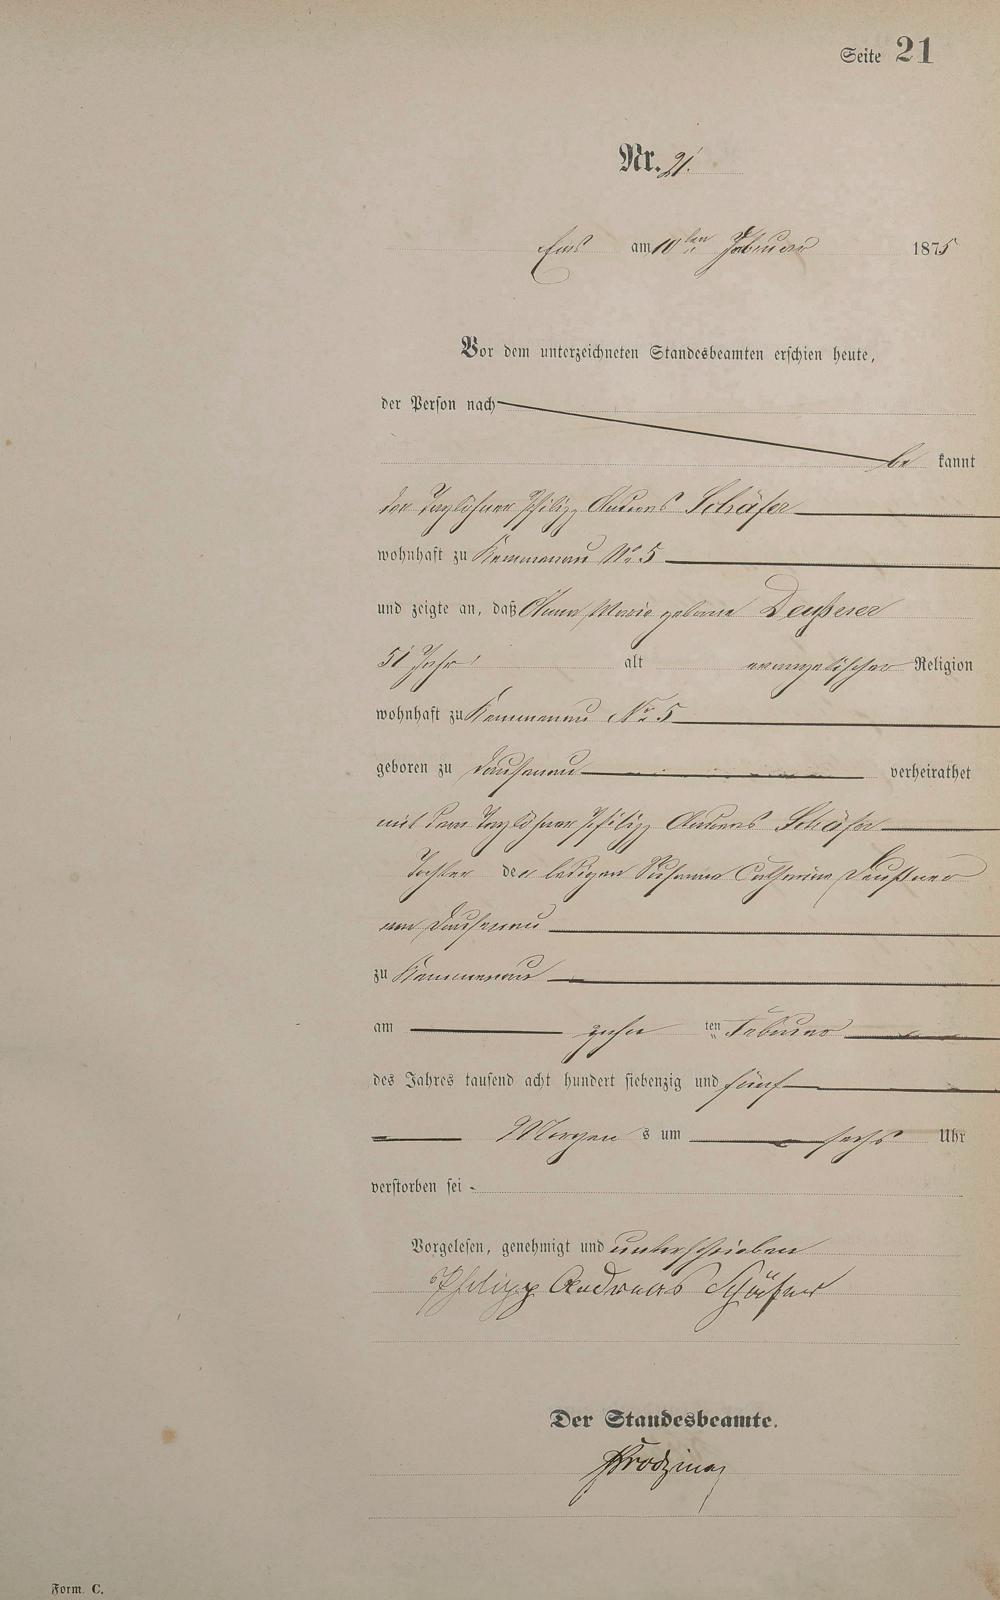 Seite 21
Nr. 21.
Ems am 10ten Februar 1875
Vor dem unterzeichneten Standesbeamten erschien heute,
der Person nach
be kannt
der Taglöhner Philipp Andreas Schäfer
wohnhaft zu Kemmenau No 5
und zeigte an, daß Anna Maria geborne Deußerer
51 Jahr alt evangelischer Religion
wohnhaft zu Kemmenau No 5
geboren zu Dausenau verheirathet
mit dem Taglöhner Philipp Andreas Schäfer
Tochter der ledigen Susanna Catharina
Dausenau
zu Kemmenau
am zehn ten Februar
des Jahres tausend acht hundert siebenzig und fünf
Morgen s um sechs Uhr
verstorben sei -
Vorgelesen, genehmigt und unterschrieben
Philipp Andreas Schäfer
Der Standesbeamte.
Form. C.